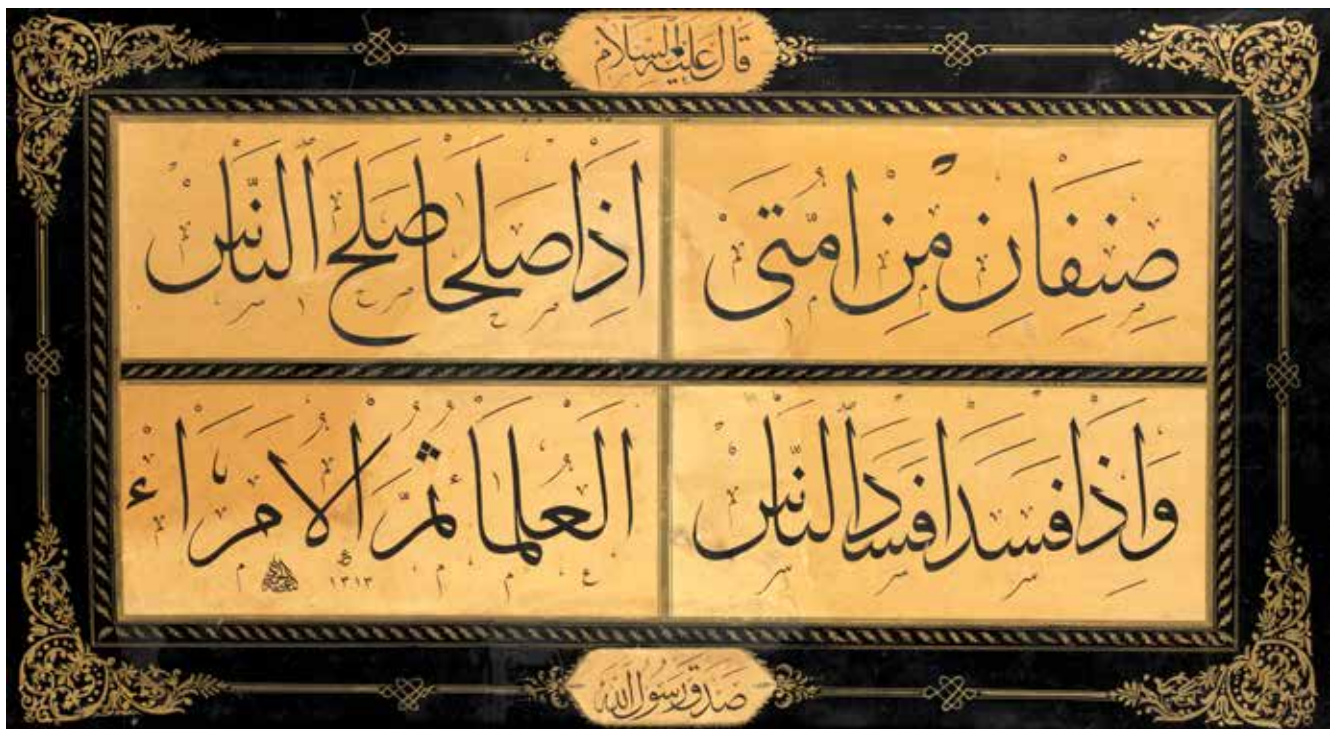 قَالَ عَلَيْهِ السَّلَامُ
صِنْفَانِ مِنْ اُمَّتى
اِذَا صَلَحَا صَلَحَ النَّاسْ
وَاِذَا فَسَدَا فَسَدَ النَّاسْ
اَلْعُلَمَاءُ ثُمَّ الْاُمَرَاءْ
١٣١٣
صَدَقَ رَسُولُ اللّٰه